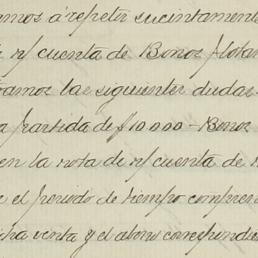 amos á repetir sucintamente
r/ cuenta de Bonos flotan
ramos las siguientes dudas
a partida de $10.000 - Bonos
en la nota de r/ cuenta de
e el periodo de tiempo
venta y el abono correspondi